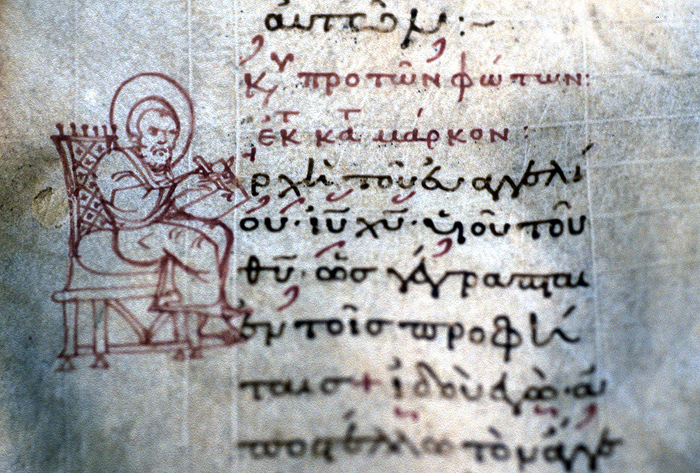 αυτῶν:–
κυ προ τῶν φώτων:
ἐκτ κατ μάρκον:
ρχὴ τοῦ ἐυαγγελί
ου· ιῡ χῡ· υἱοῦ του
θῡ· ὡσ γέγραπται
ἐν τοῖσ προφή
ταισ + ἰδοὺ ἐγὼ· ἀ
ποστέλλω τὸν ἄγγε